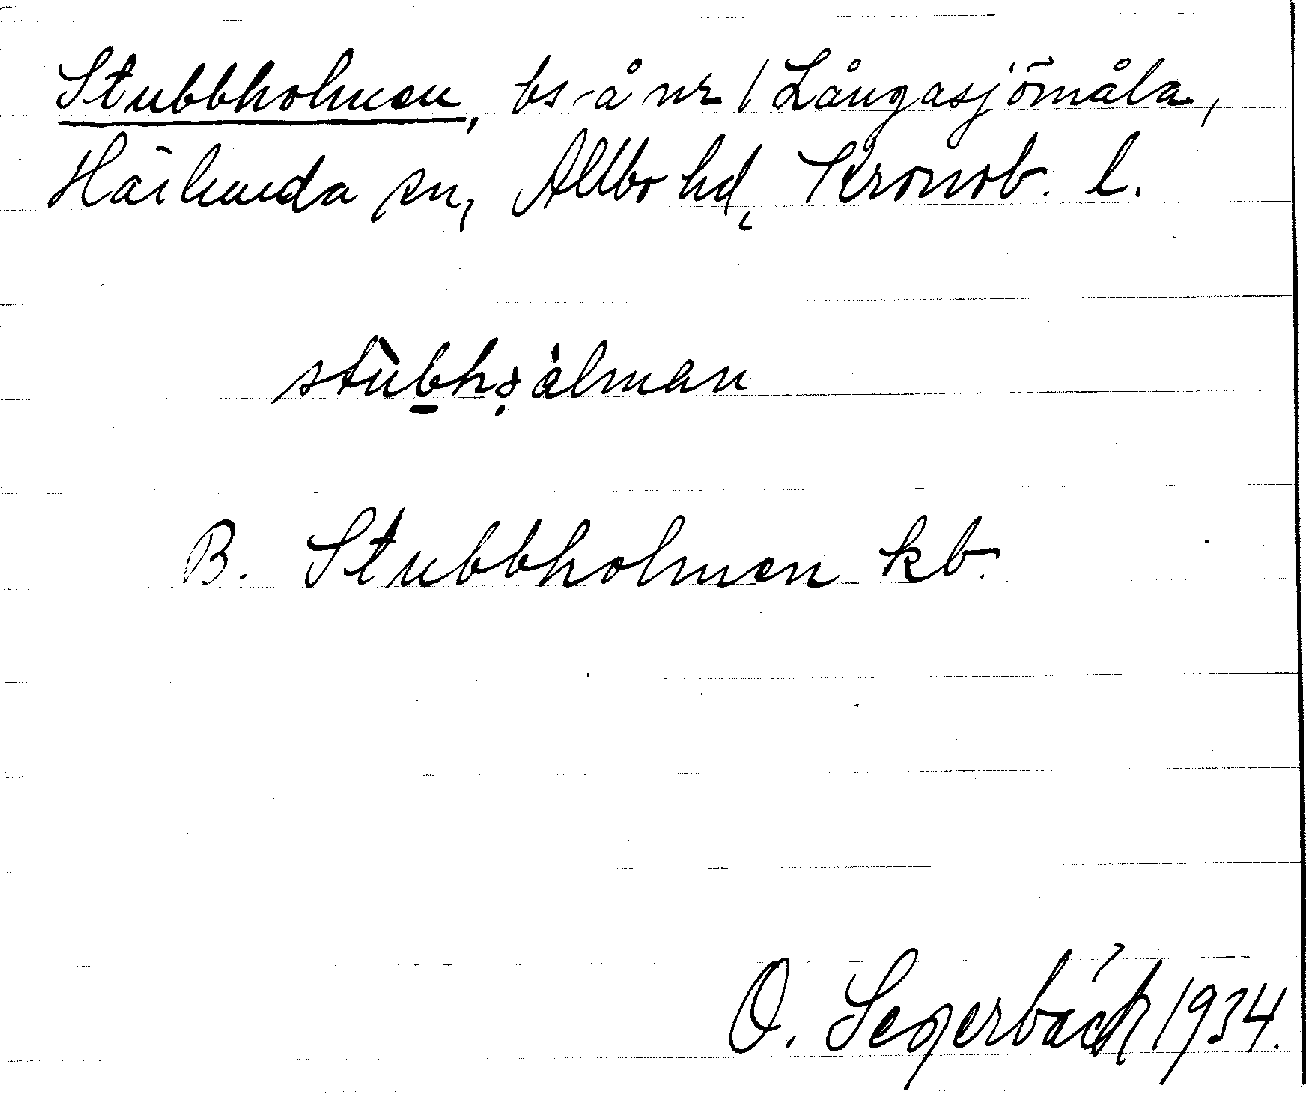 Stubbholmen, bs å nr 1 Långasjömåla,
Härlunda sn, Allbo hd, Kronob. l.
stùbhålman
B. Stubbholmen kb.
O. Segerbäck 1934.